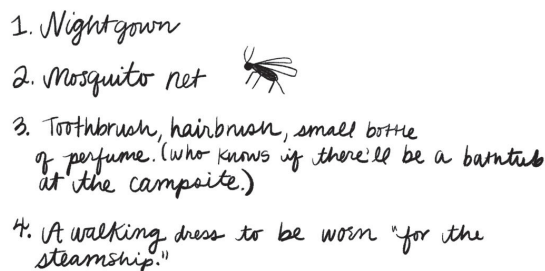 1. Nightgown
2. Mosquito net
3. Toothbrush, hairbrush, small bottle
of perfume. (Who knows if there'll be a bathtub
at the campsite.)
4. A walking dress to be worn "for the
steamship."